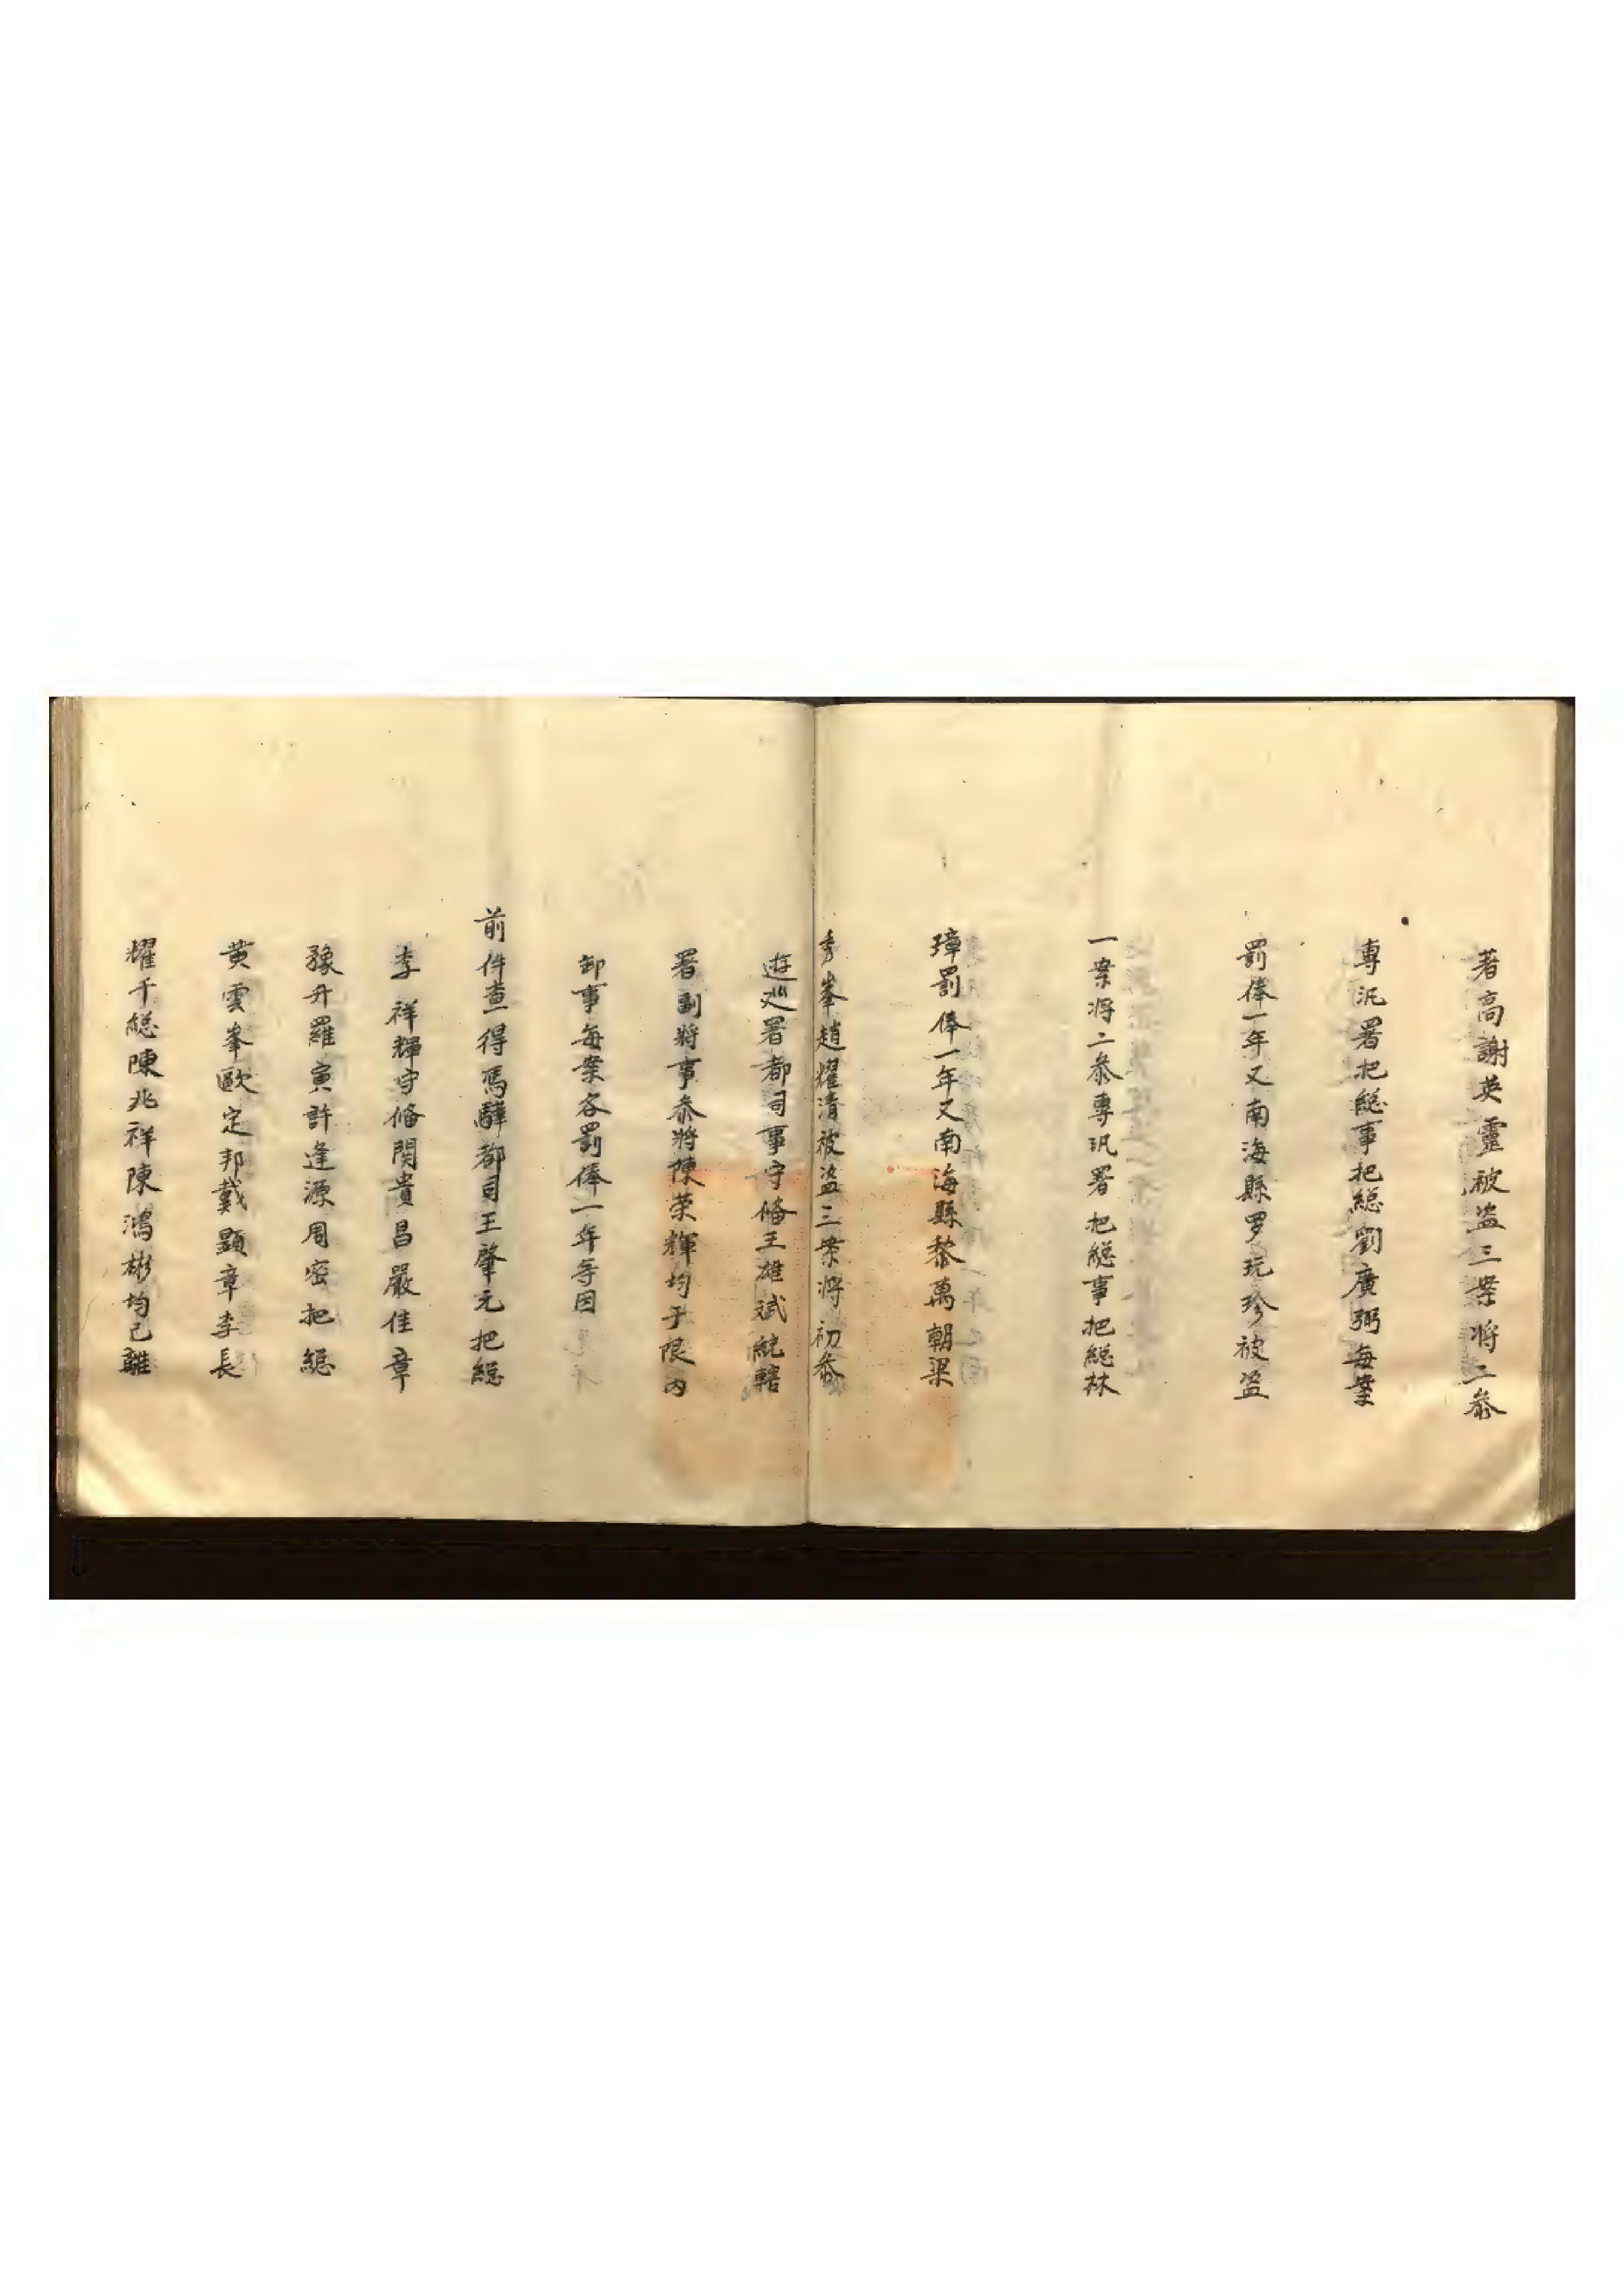 著高謝英靈被盗三案將二叅
專汛署把緫事把緫劉廣弼每案
罰俸一年又南海縣罗玩珍被盗
一案將二叅專汛署把緫事把緫林
璋罰俸一年又南海縣黎萬朝梁
秀峯趙耀清被盗三案將初叅
遊廵署都司事守備王雄斌統轄
署副將事叅將陳荣輝均于限內
卸事每案各罰俸一年等因
前件查得馮驊都司王肇元把緫
李祥輝守備関貴昌嚴佳章
豫升羅寅許逢源周密把緫
黄雲峯歐定邦戴顯章李長
耀千緫陳兆祥陳鴻彬均已離